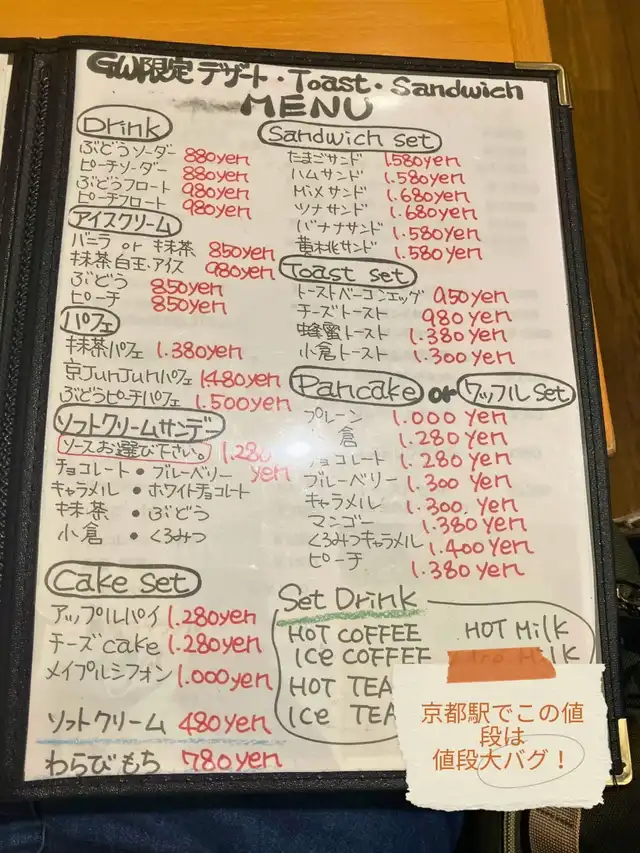 GW限定 デザート・Toast・Sandwich
MENU
Drink
ぶどうソーダー 880yen
ピーチソーダー 880yen
ぶどうフロート 980yen
ピーチフロート 980yen
アイスクリーム
バニラ or 抹茶 850yen
抹茶白玉・アイス 980yen
ぶどう 850yen
ピーチ 850yen
パフェ
抹茶パフェ 1.380yen
京JunJunパフェ 1.480yen
ぶどうピーチパフェ 1.500yen
ソフトクリームサンデー
ソースお選び下さい。 1.280
yen
チョコレート・ブルーベリー
キャラメル・ホワイトチョコレート
抹茶・ぶどう
小倉・くろみつ
Cake set
アップルパイ 1.280yen
チーズcake 1.280yen
メイプルシフォン 1.000yen
ソフトクリーム 480yen
わらびもち 780yen
Sandwich set
たまごサンド 1.580yen
ハムサンド 1.580yen
Mixサンド 1.680yen
ツナサンド 1.680yen
バナナサンド 1.580yen
黄桃サンド 1.580yen
Toast set
トーストベーコンエッグ 950yen
チーズトースト 980yen
蜂蜜トースト 1.380yen
小倉トースト 1.300yen
Pancake or ワッフルset
プレーン 1.000yen
倉 1.280yen
チョコレート 1.280yen
ブルーベリー 1.300yen
キャラメル 1.300.yen
マンゴー 1.380yen
くろみつキャラメル 1.400yen
ピーチ 1.380yen
Set Drink
HOT COFFEE HOT Milk
Ice COFFEE Milk
HOT TEA
Ice TEA
京都駅でこの値
段は
値段大バグ！